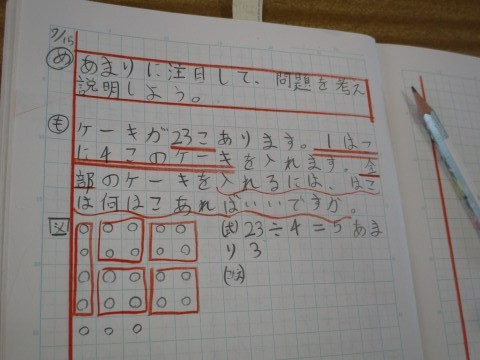 7/15
め あまりに注目して、問題を考え
説明しよう。
も ケーキが23こあります。1はこ
に4このケーキを入れます。全
部のケーキを入れるには、はこ
は何はこあればいいですか。
図 (式) 23÷4=5あま
り3